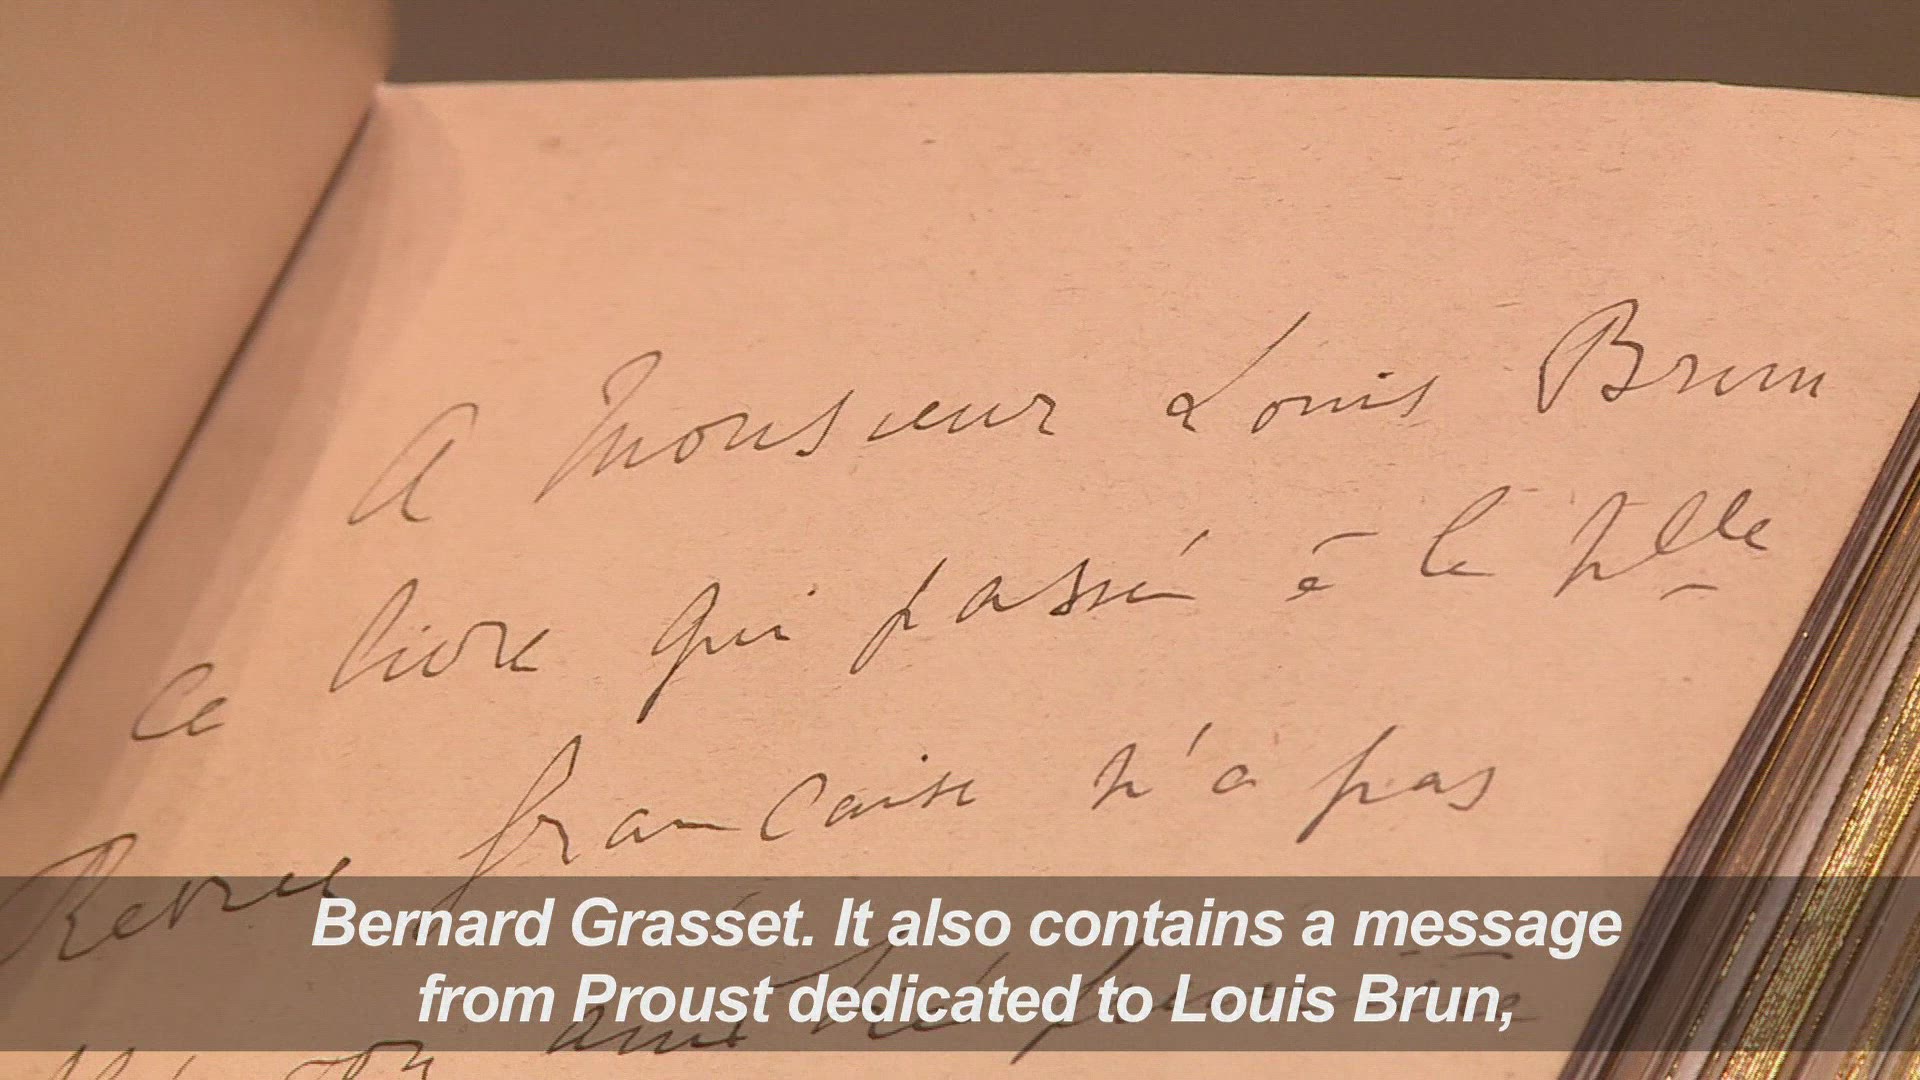 A Monsieur Louis Brun
ce livre qui passé à la nlle
Revue française n'a pas
Bernard Grasset. It also contains a message
from Proust dedicated to Louis Brun,